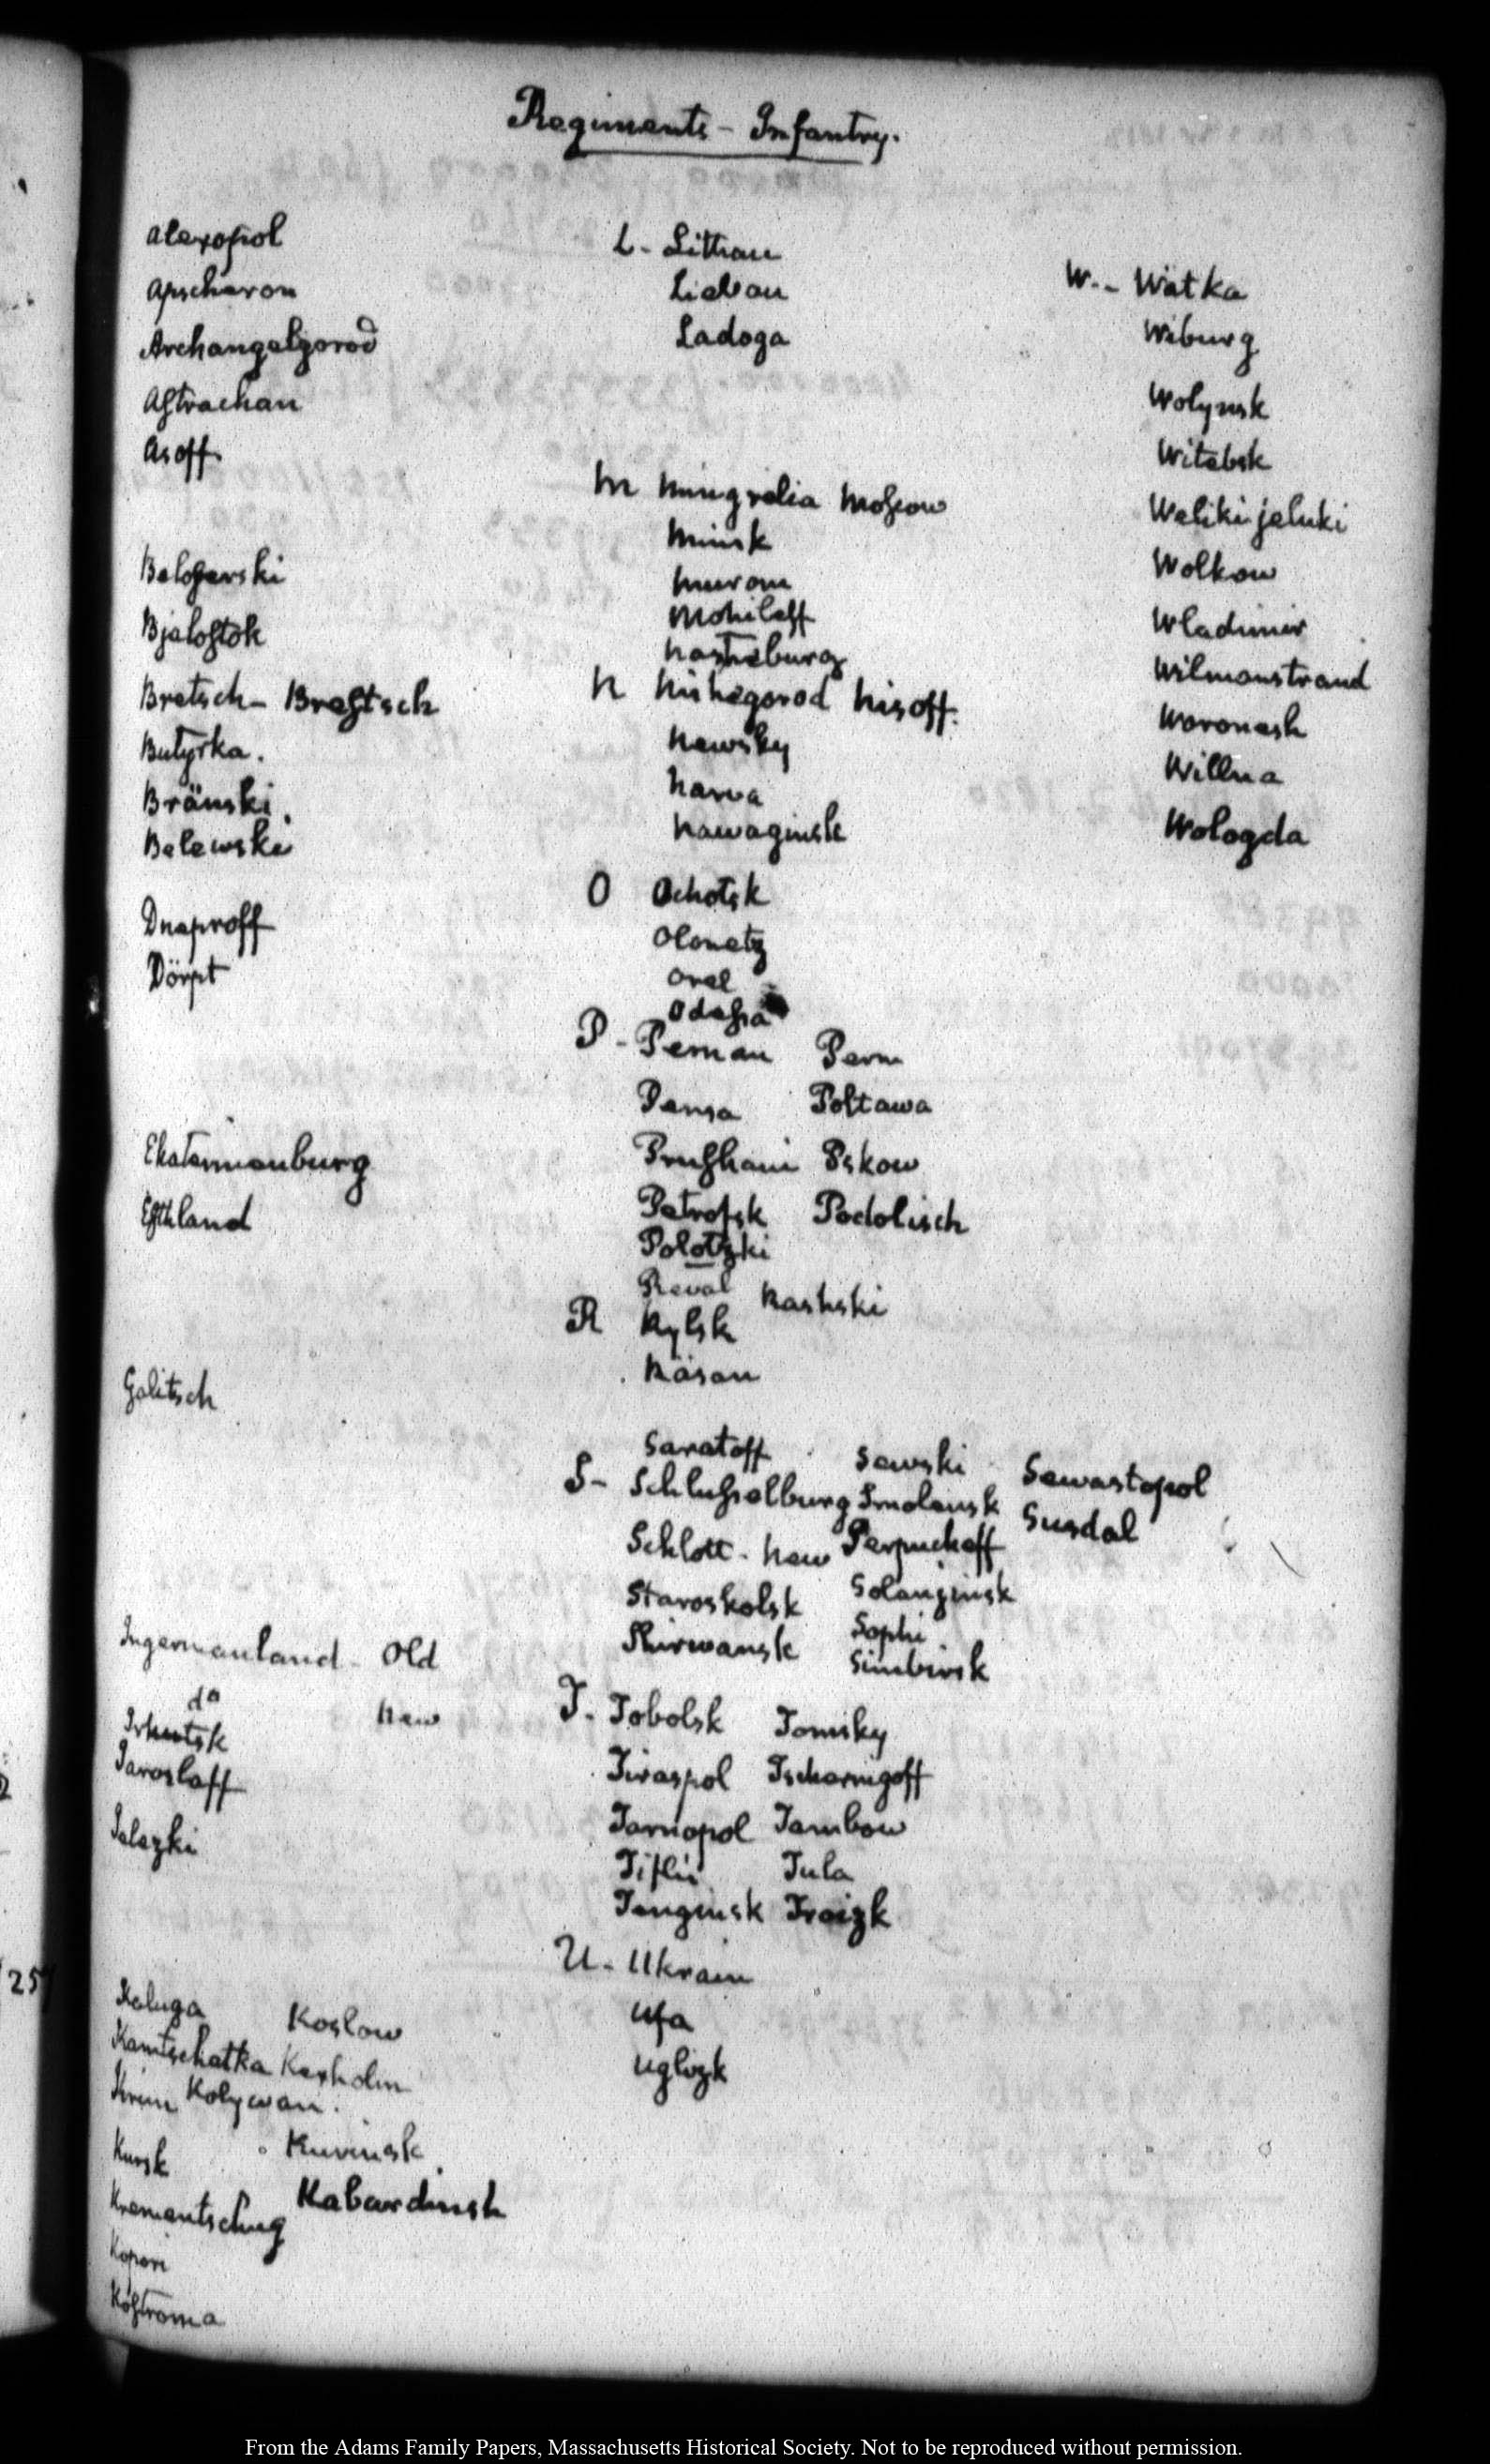 Regiments - Infantry.
Alexopol
Apscheron
Archangelgorod
Astrachan
Asoff
Beloserski
Bjalostok
Bretsch - Brestsch
Butyrka.
Bränski.
Belewski
Dneproff
Dörpt
Ekaterinenburg
Esthland
Galitsch
Ingermanland - Old
do New
Irkutsk
Jaroslaff
Jelezki
Kaluga Koslow
Kamtschatka Kexholm
Krim Kolywan.
Kursk Kurinsk
Krementschug Kabardinsk
Kopori
Kostroma
L - Litthau
Liebau
Ladoga
M Mingrelia Moscow
Minsk
Murom
Mohileff
Nastheburg
N Nishegorod Nisoff.
Newsky
Narva
Nawaginsk
O Ochotsk
Olonetz
Orel
Odessa
P - Pernau Perm
Pensa Poltawa
Prushani Pskow
Petrofsk Podolisch
Polotzki
Reval Rashski
R Rylsk
Räsan
Saratoff Sewski Sewastopol
S - Schlusselburg Smolensk Susdal
Schlott - New Serpuchoff
Staroskolsk
Shirwansk Sophi
Simbirsk
T - Tobolsk Tomsky
Tiraspol Tschernigoff
Tarnopol Tambow
Tiflis Tula
Tenginsk Troizk
U - Ukrain
Ufa
Uglizk
W. - Wätka
Wiburg
Wolynsk
Witebsk
Welikijeluki
Wolkow
Wladimir
Wilmanstrand
Woronesh
Willna
Wologda
257
From the Adams Family Papers, Massachusetts Historical Society. Not to be reproduced without permission.